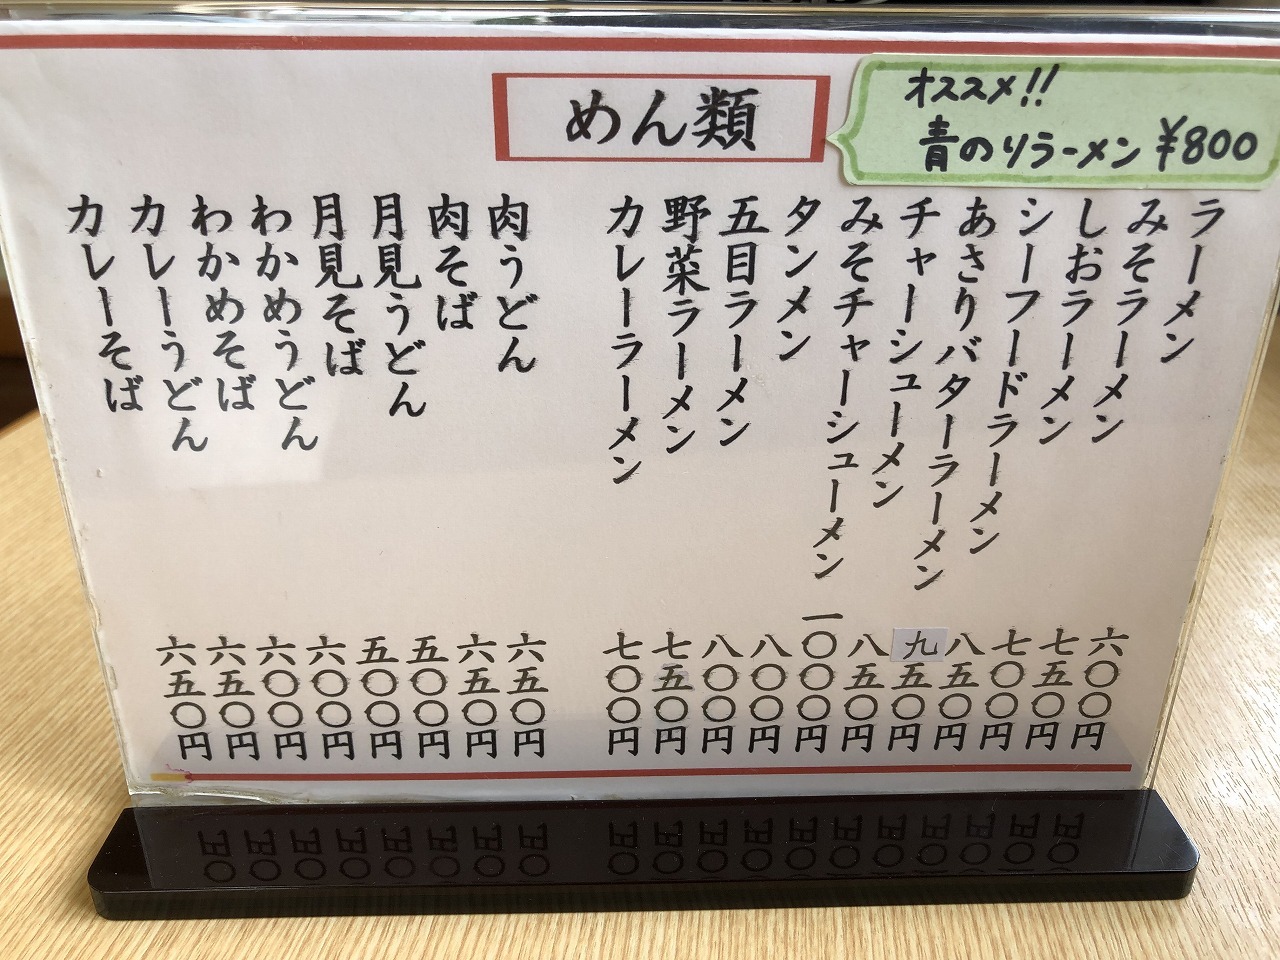 めん類
オススメ!!
青のりラーメン ¥800
ラーメン 六〇〇円
みそラーメン 七五〇円
しおラーメン 七〇〇円
シーフードラーメン 八五〇円
あさりバターラーメン 九五〇円
チャーシューメン 八五〇円
みそチャーシューメン 一〇〇〇円
タンメン 八〇〇円
五目ラーメン 八〇〇円
野菜ラーメン 七五〇円
カレーラーメン 七〇〇円
肉うどん 六五〇円
肉そば 六五〇円
月見うどん 五〇〇円
月見そば 五〇〇円
わかめうどん 六〇〇円
わかめそば 六〇〇円
カレーうどん 六五〇円
カレーそば 六五〇円